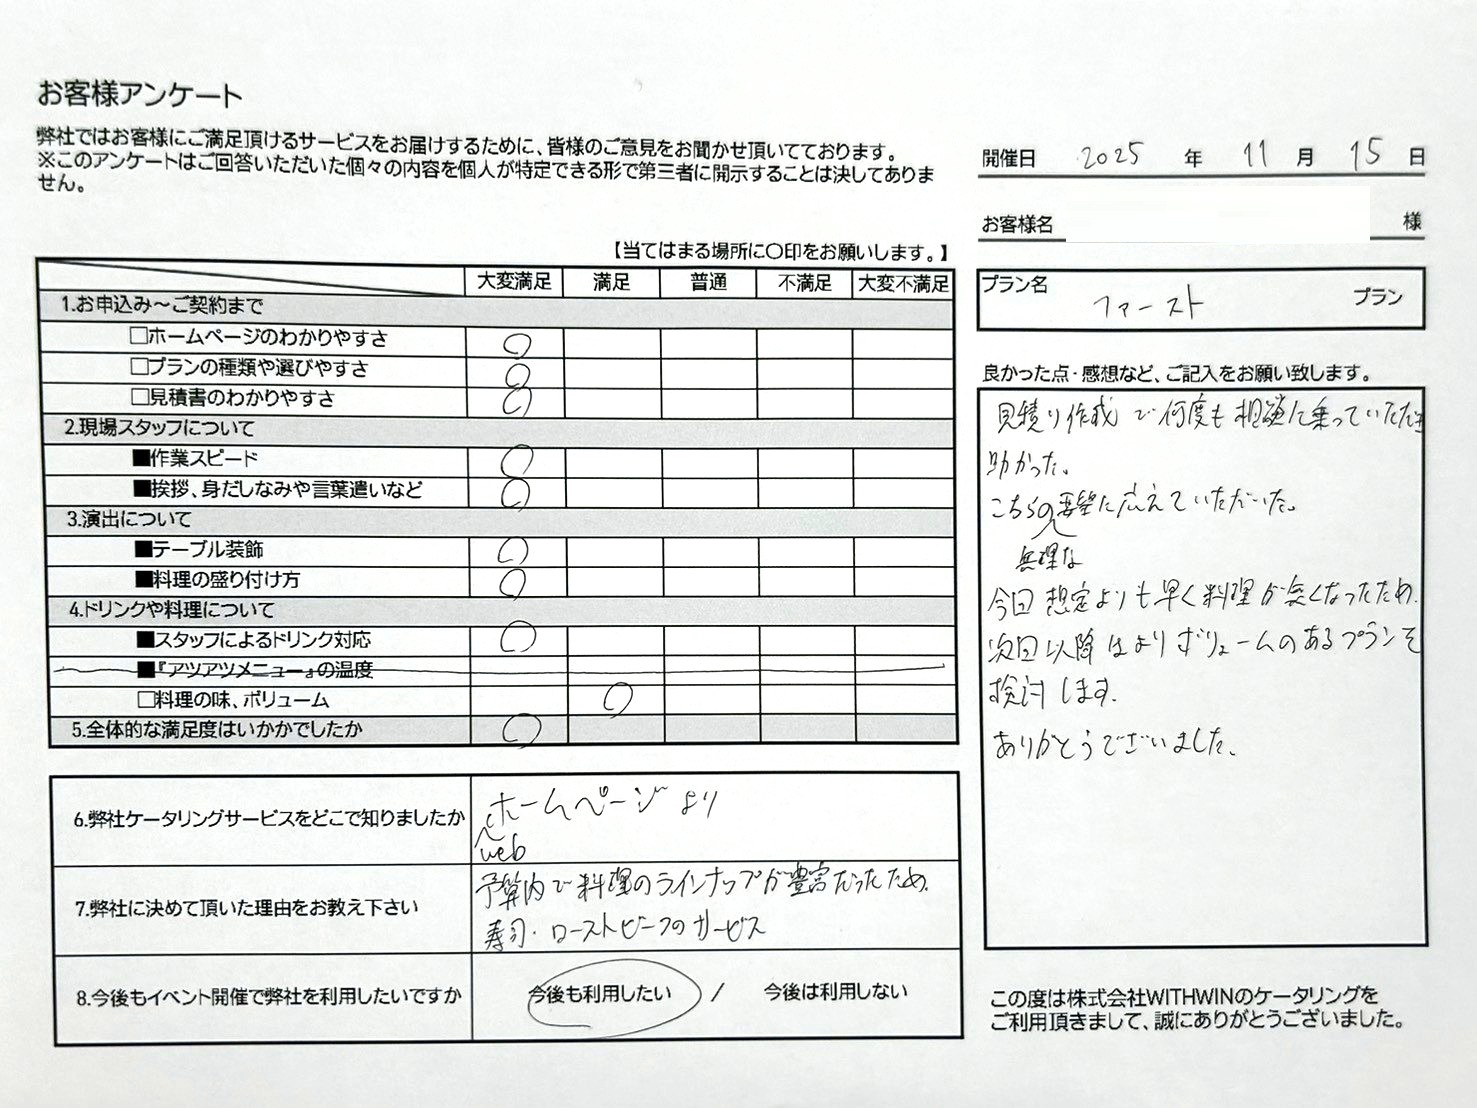 お客様アンケート
弊社ではお客様にご満足頂けるサービスをお届けするために、皆様のご意見をお聞かせ頂いております。
※このアンケートはご回答いただいた個々の内容を個人が特定できる形で第三者に開示することは決してありま
せん。
開催日 2025 年 11 月 15 日
お客様名 様
プラン名 ファースト プラン
【当てはまる場所に〇印をお願いします。】
大変満足 満足 普通 不満足 大変不満足
1.お申込み～ご契約まで
□ホームページのわかりやすさ ○
□プランの種類や選びやすさ ○
□見積書のわかりやすさ ○
2.現場スタッフについて
■作業スピード ○
■挨拶、身だしなみや言葉遣いなど ○
3.演出について
■テーブル装飾 ○
■料理の盛り付け方 ○
4.ドリンクや料理について
■スタッフによるドリンク対応 ○
■『アツアツメニュー』の温度
□料理の味、ボリューム ○
5.全体的な満足度はいかかでしたか ○
6.弊社ケータリングサービスをどこで知りましたか
ホームページより
web
7.弊社に決めて頂いた理由をお教え下さい
予算内で料理のラインナップが豊富だったため。
寿司・ローストビーフのサービス
8.今後もイベント開催で弊社を利用したいですか
今後も利用したい / 今後は利用しない
良かった点・感想など、ご記入をお願い致します。
見積り作成で何度も相談に乗っていただき
助かった。
こちらの要望に応えていただいた。
無理な
今回想定よりも早く料理が無くなったため、
次回以降はよりボリュームのあるプランを
検討します。
ありがとうございました。
この度は株式会社WITHWINのケータリングを
ご利用頂きまして、誠にありがとうございました。